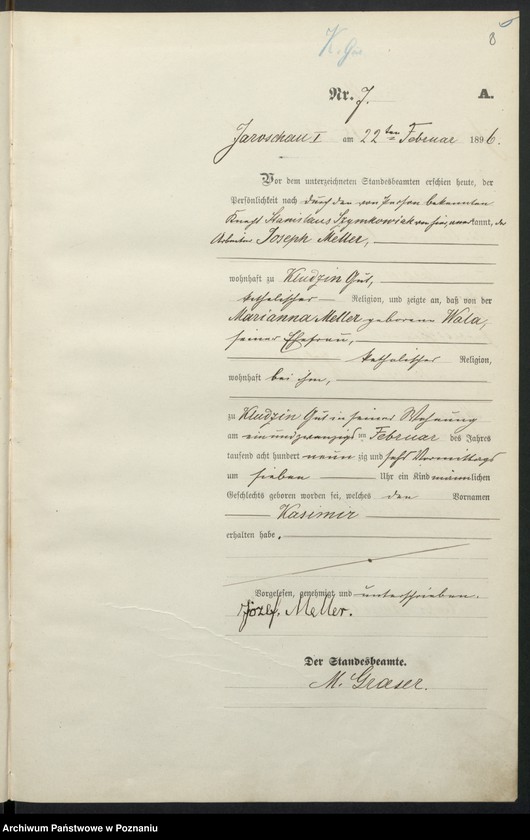 8
K. Gut
Nr. 7. A.
Jaroschau I am 22 ten Februar 1896.
Vor dem unterzeichneten Standesbeamten erschien heute, der
Persönlichkeit nach durch den von Person bekannten
Knecht Stanislaus Szymkowiak von hier, anerkannt, der
Arbeiter Joseph Meller,
wohnhaft zu Kludzin Gut,
katholischer Religion, und zeigte an, daß von der
Marianna Meller geborene Wala,
seiner Ehefrau,
katholischer Religion,
wohnhaft bei ihm,
zu Kludzin Gut in seiner Wohnung
am einundzwanzigsten Februar des Jahres
tausend acht hundert neunzig und sechs Vormittags
um sieben Uhr ein Kind männlichen
Geschlechts geboren worden sei, welches den Vornamen
Kasimir
erhalten habe.
Vorgelesen, genehmigt und unterschrieben.
Józef Meller.
Der Standesbeamte.
M. Graeser.
Archiwum Państwowe w Poznaniu